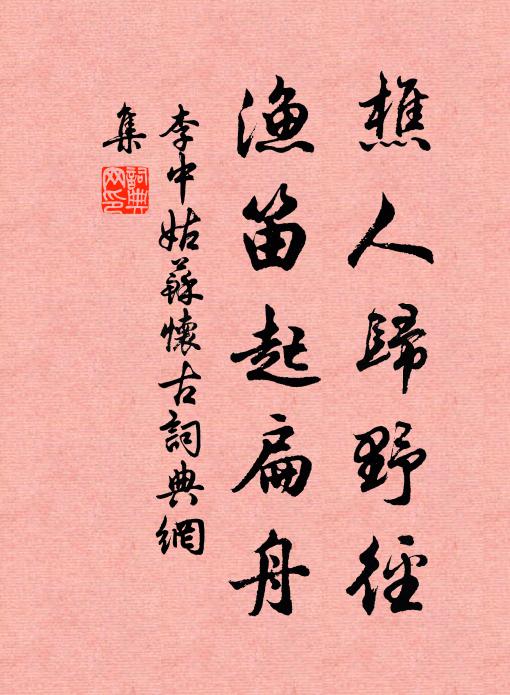 樵人歸野徑
漁笛起扁舟
李中姑蘇懷古詞典網
集
詞典
网印